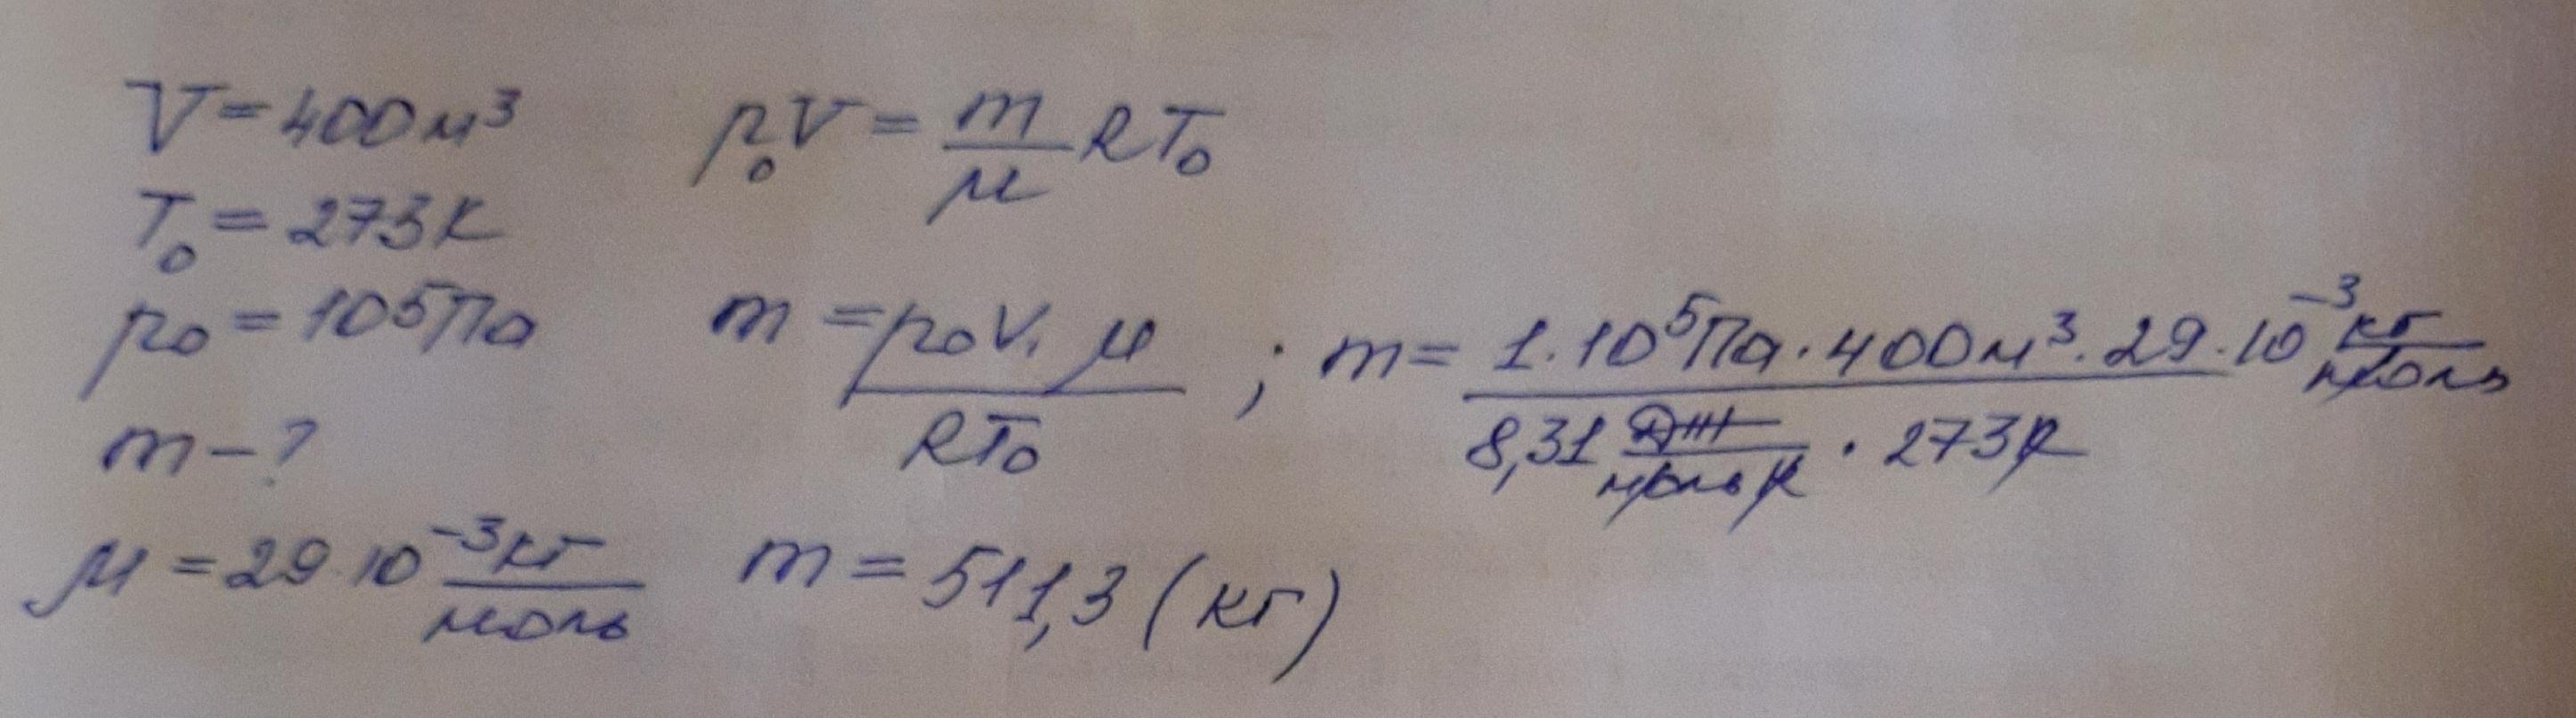 V = 400 м³
T₀ = 273 К
p₀ = 10⁵ Па
m - ?
μ = 29 · 10⁻³ кг/моль
p₀V = m/μ RT₀
m = p₀V · μ / RT₀ ; m = 1 · 10⁵ Па · 400 м³ · 29 · 10⁻³ кг/моль / 8,31 Дж/моль К · 273 К
m = 511,3 (кг)